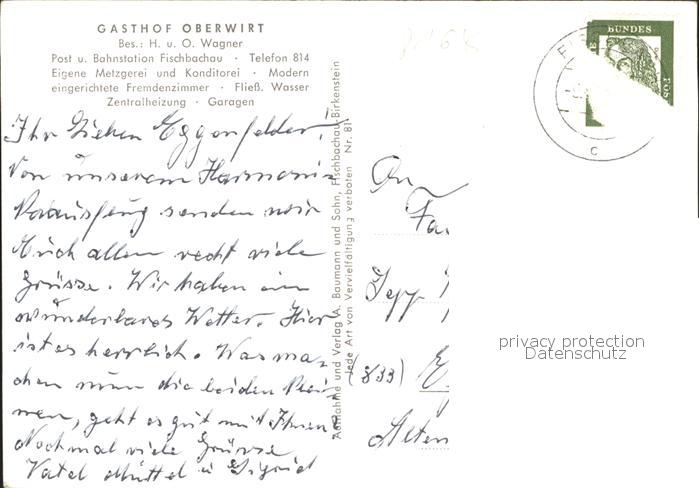 GASTHOF OBERWIRT
Bes.: H. u. O. Wagner
Post u. Bahnstation Fischbachau · Telefon 814
Eigene Metzgerei und Konditorei · Modern
eingerichtete Fremdenzimmer · Fließ. Wasser
Zentralheizung · Garagen
Ihr lieben Eggenfelder,
Von unserem
senden wir
Euch allen recht viele
Grüsse. Wir haben ein
wunderbares Wetter. Hier
ist es herrlich. Was ma-
chen nun die beiden
geht es gut mit Ihnen
Nochmal viele Grüsse
Vatel Muttel u Sigrid
Aufnahme und Verlag A. Baumann und Sohn, Fischbachau-Birkenstein
Jede Art von Vervielfältigung verboten Nr. 81
BUNDES
C
An
Fa
Sepp
(833)
Alten
privacy protection
Datenschutz